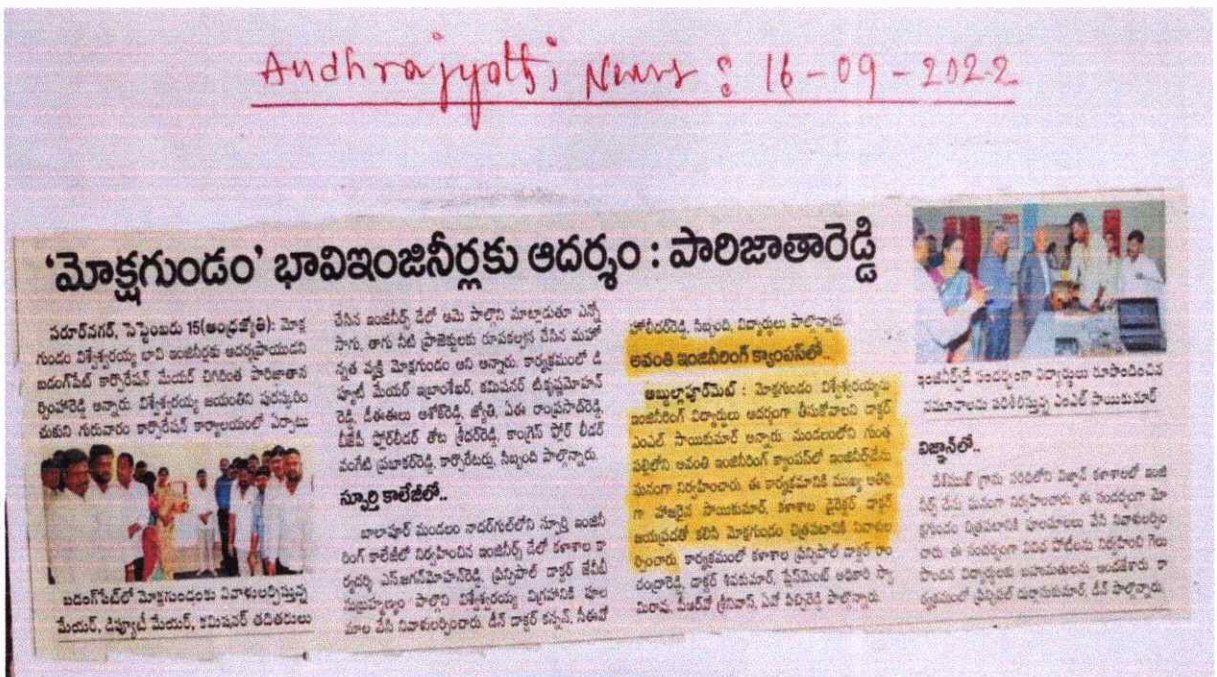 Andhrajyothi News : 16-09-2022
‘మోక్షగుండం’ భావిఇంజినీర్లకు ఆదర్శం : పారిజాతారెడ్డి
సరూర్‌నగర్, సెప్టెంబరు 15(ఆంధ్రజ్యోతి): మోక్ష
గుండం విశ్వేశ్వరయ్య భావి ఇంజినీర్లకు ఆదర్శప్రాయుడని
బడంగ్‌పేట్ కార్పొరేషన్ మేయర్ చిగిరింత పారిజాతాన
ర్సింహారెడ్డి అన్నారు. విశ్వేశ్వరయ్య జయంతిని పురస్కరిం
చుకుని గురువారం కార్పొరేషన్ కార్యాలయంలో ఏర్పాటు
బడంగ్‌పేట్‌లో మోక్షగుండంకు నివాళులర్పిస్తున్న
మేయర్, డిప్యూటీ మేయర్, కమిషనర్ తదితరులు
చేసిన ఇంజనీర్స్ డేలో ఆమె పాల్గొని మాట్లాడుతూ ఎన్నో
సాగు, తాగు నీటి ప్రాజెక్టులకు రూపకల్పన చేసిన మహో
న్నత వ్యక్తి మోక్షగుండం అని అన్నారు. కార్యక్రమంలో డి
ప్యూటీ మేయర్ ఇబ్రాంశేఖర్, కమిషనర్ టీ.కృష్ణమోహన్
రెడ్డి, డీఈఈలు అశోక్‌రెడ్డి, జ్యోతి, ఏఈ రాంప్రసాద్‌రెడ్డి,
బీజేపీ ఫ్లోర్‌లీడర్ తోట శ్రీధర్‌రెడ్డి, కాంగ్రెస్ ఫ్లోర్ లీడర్
వంగేటి ప్రభాకర్‌రెడ్డి, కార్పొరేటర్లు, సిబ్బంది పాల్గొన్నారు.
స్ఫూర్తి కాలేజీలో..
బాలాపూర్ మండలం నాదర్‌గుల్‌లోని స్ఫూర్తి ఇంజనీ
రింగ్ కాలేజీలో నిర్వహించిన ఇంజనీర్స్ డేలో కళాశాల కా
ర్యదర్శి ఎస్.జగన్‌మోహన్‌రెడ్డి, ప్రిన్సిపాల్ డాక్టర్ జేబీవీ
సుబ్రహ్మణ్యం పాల్గొని విశ్వేశ్వరయ్య విగ్రహానికి పూల
మాల వేసి నివాళులర్పించారు. డీన్ డాక్టర్ కన్నన్, సీఈవో
హరిధర్‌రెడ్డి, సిబ్బంది, విద్యార్థులు పాల్గొన్నారు.
అవంతి ఇంజనీరింగ్ క్యాంపస్‌లో..
అబ్దుల్లాపూర్‌మెట్ : మోక్షగుండం విశ్వేశ్వరయ్యను
ఇంజనీరింగ్ విద్యార్థులు ఆదర్శంగా తీసుకోవాలని డాక్టర్
ఎంఎల్ సాయికుమార్ అన్నారు. మండలంలోని గుంత
పల్లిలోని అవంతి ఇంజనీరింగ్ క్యాంపస్‌లో ఇంజనీర్స్‌డేను
ఘనంగా నిర్వహించారు. ఈ కార్యక్రమానికి ముఖ్య అతిథి
గా హాజరైన సాయికుమార్, కళాశాల డైరెక్టర్ డాక్టర్
జయప్రదతో కలిసి మోక్షగుండం చిత్రపటానికి నివాళుల
ర్పించారు. కార్యక్రమంలో కళాశాల ప్రిన్సిపాల్ డాక్టర్ రాం
చంద్రారెడ్డి, డాక్టర్ శివకుమార్, ప్లేస్‌మెంట్ అధికారి స్వా
మిరావు, పీఆర్‌వో శ్రీనివాస్, ఏవో పిచ్చిరెడ్డి పాల్గొన్నారు.
ఇంజనీర్స్‌డే సందర్భంగా విద్యార్థులు రూపొందించిన
నమూనాలను పరిశీలిస్తున్న ఎంఎల్ సాయికుమార్
విజ్ఞాన్‌లో..
దేశ్‌ముఖ్ గ్రామ పరిధిలోని విజ్ఞాన్ కళాశాలలో ఇంజ
నీర్స్ డేను ఘనంగా నిర్వహించారు. ఈ సందర్భంగా మో
క్షగుండం చిత్రపటానికి పూలమాలలు వేసి నివాళులర్పిం
చారు. ఈ సందర్భంగా వివిధ పోటీలను నిర్వహించి గెలు
పొందిన విద్యార్థులకు బహుమతులను అందజేశారు. కా
ర్యక్రమంలో ప్రిన్సిపాల్ దుర్గాసుకుమార్, డీన్ పాల్గొన్నారు.